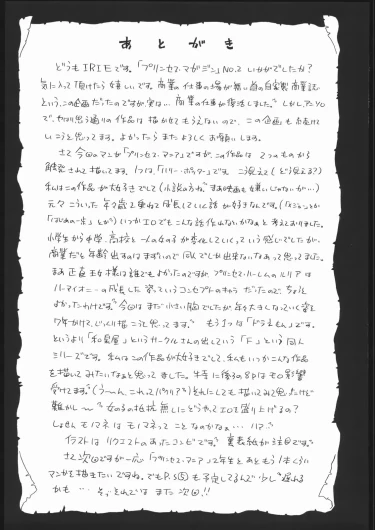 あとがき
どうもIRIEです。「プリンセス・マガジン」NO.2 いかがでしたか?
気に入って頂けたら嬉しいです。商業の仕事の場が無い自の自家製商業誌
という、この企画だったのですが、実は… 商業の仕事が復活しました。しかし、アンソロ
で、やはり思う通りの作品は描かせてもらえないので、この企画も続けて
いこうと思ってます。よかったらまたよろしくお願いします。
さて今回のマンガ「プリンセス・マニア」ですが、この作品は2つのものから
触発されて描いてます。1つは、「ハリー・ポッター」です。ご覧えて(どう見える?)
私はこの作品が大好きでして(小説の方ね。まあ映画も嫌いじゃないが…)
元々こういった年々歳と重ねて成長していく話が好きなんです。
「はじめの一歩」とか)いつかエロでもこんな話作れないかなぁと考えておりました。
小学生から中学、高校と一人の女の子が変化していく、という感じでしたが、
商業だと年齢出すのはまずいので同人でしか出来ないなぁって思ってました。
まあ正直王女様は誰でもよかったのですが、プリンセス・ハーレムのルリアは
ハーマイオニーの成長した姿っていうコンセプトのキャラだったので、ちょうど
よかったわけです。今回はまだ小さい胸でしたが年々大きくなっていく姿を
7年かけて、じっくり描こうと思ってます。もう1つは「ドラえもん」です。
というより「和泉屋」というサークルさんの出していう「F」という同人
シリーズです。私はこの作品が大好きでして、私もいつかこんな作品
を描いてみたいなぁと思ってました。特に後ろの8Pはもろ影響
受けてます。(う~ん、これってパクリ?)それにしても描いてみて思ったけど
難かし~ 女の子の抵抗無しにどうやってエロを盛り上げるの?
しょせんモノマネはモノマネってことなのかなぁ…ハァ
イラストはリクエストのあったコンビです。裏表紙が注目です。
さて次回ですが一応「プリンセス・マニア」2年生とあともう1本くらい
マンガを描きたいですね。でもP.S⑤も予定してるんで少し遅れる
かも… と、それではまた次回!!